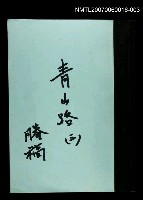 NMTL20070060018-003
青山路(二)
勝稿